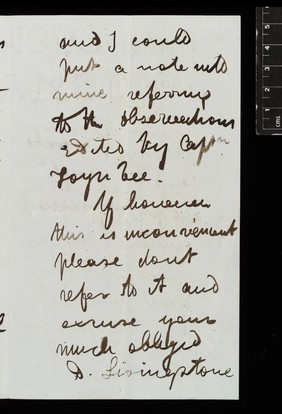 and I could
put a note into
mine referring
to the observations
edited by Captn
Toynbee.
If however
this is inconvenient
please dont
refer to it and
excuse your
much obliged
D. Livingstone
cms
1
2
3
4
5